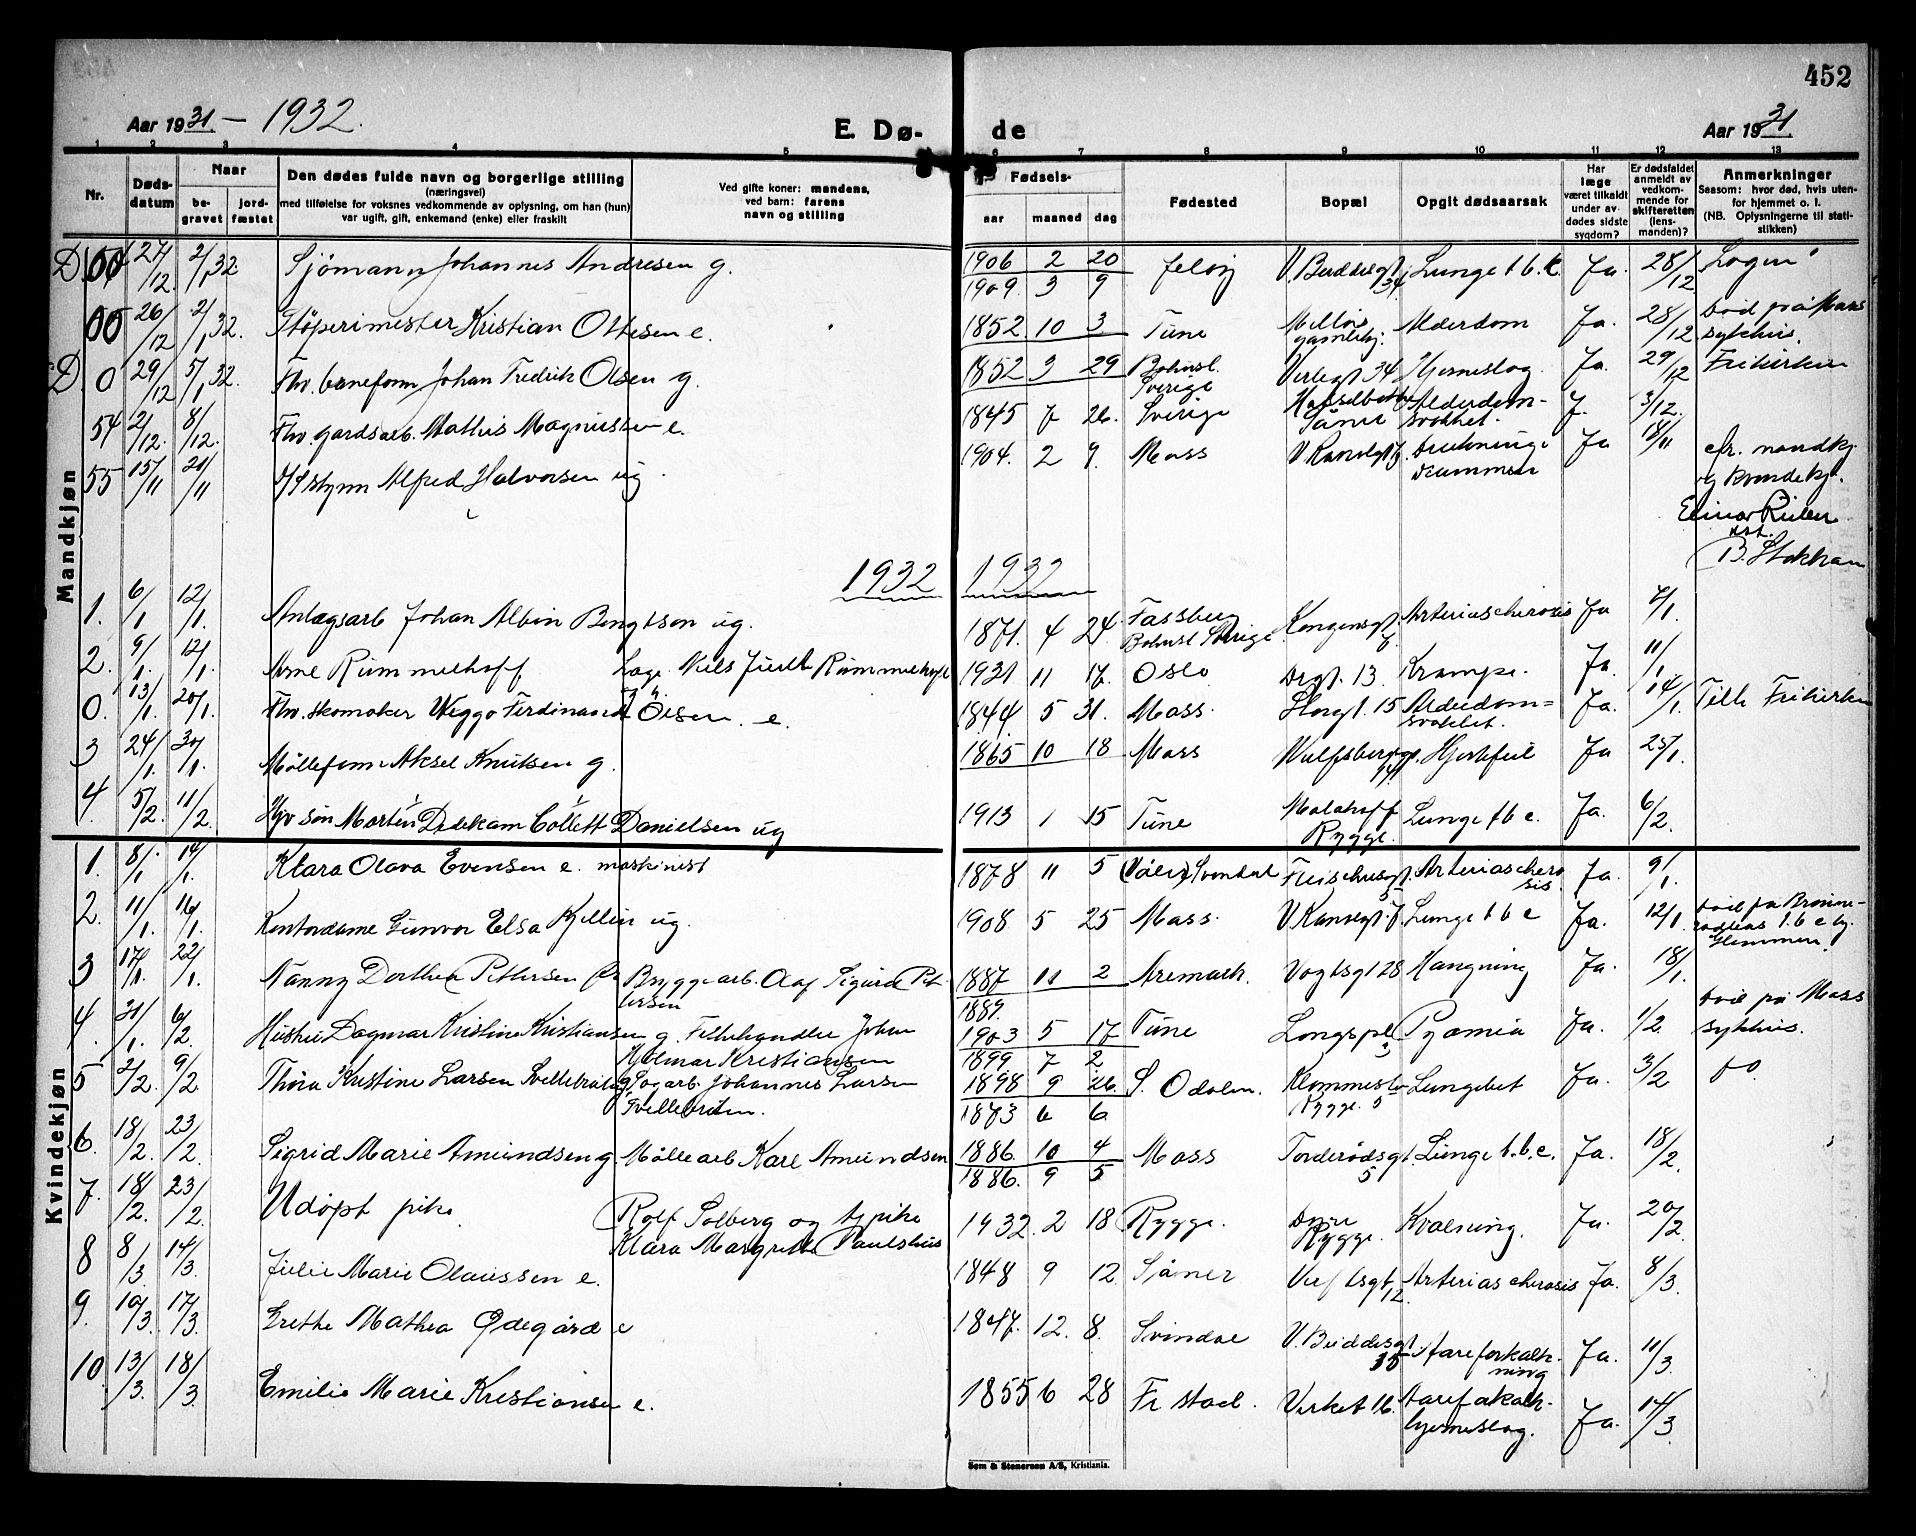 452
Aar 1931. – 1932.
E. Dø- de
Aar 1931.
1 2 3 4 5 6 7 8 9 10 11 12 13
Nr.
Døds-datum
Naar
be-gravet
jord-fæstet
Den dødes fulde navn og borgerlige stilling
(næringsvei)
med tilføielse for voksnes vedkommende av oplysning, om han (hun)
var ugift, gift, enkemand (enke) eller fraskilt
Ved gifte koner: mandens,
ved barn: farens
navn og stilling
Fødsels-
aar maaned dag
Fødested
Bopæl
Opgit dødsaarsak
Har læge været tilkaldt under av-dødes sidste sygdom?
Er dødsfaldet anmeldt av vedkom-mende for skifteretten (lens-manden)?
Anmerkninger
Saasom: hvor død, hvis uten-
for hjemmet o. l.
(NB. Oplysningerne til stati-
stikken)
Mandkjøn
D 00 27/12 2/1 32 Sjömann Johannes Andresen g. 1906 2 20 Jeløy V. Buddegt 34 Lunge t.b.c. Ja. 28/12 Logen
1909. 3 9
00 26/12 2/1 32. Støperimester Kristian Ottesen e. 1852. 10 3 Tune Melløs gamlehj. Alderdom Ja. 28/12 död på Moss sykehus.
D 0 29/12 5/1 32 Fhv. baneform Johan Fredrik Olsen g. 1852 3 29 Bohusl. Sverige Verlegt 34 Hjerneslag. Ja. 29/12 Frikirken
54 2/12. 8/12. Fhv. gardsarb. Mathis Magnussen e. 1845 7 26. Sverige Såner Alderdom-svakhet. J. 3/12.
55 15/11 20/11 Alfred Halvorsen ug. 1904. 2 9. Moss Drukning i Vammen Ja 18/11 cfr. mandkj. og kvindekj.
Einar Rieber
B. Stokham
1932 1932
1. 6/1 12/1. Anlægsarb Johan Albin Bengtson ug. 1871. 4 24. Bohusl Sverige Kongensgt 7 Arteriascherosis Ja 7/1.
2. 9/1. 12/1. Arne Rummelhoff Læge Niels Juell Rummelhoff 1931 11 17. Oslo Drgt. 13. Krampe. Ja. 11/1
0. 13/1. 20/1. Fhv. skomaker Viggo Ferdinand Olsen. e. 1844. 5 31. Moss. Storgt. 15 Alderdom=svakhet. Ja. 14/1. Tilh Frikirken
3 24/1. 30/1. Mölleform Aksel Knutsen g. 1865 10 18 Moss Wulfsbergsgt. Hjertefeil Ja 25/1.
4. 5/2. 11/2. Hjv sön Morten Dedekam Collett Danielsen ug 1913 1 15 Tune Malakoff Rygge. Lunge t b c. Ja. 6/2.
Kvindekjøn
1. 8/1. 14/1. Klara Olava Evensen e. maskinist 1878 11 5 Våler Svendal Arteriascherosis. Ja. 9/1.
2. 11/1. 16/1. Kontordame Gunvor Elsa Kjellin ug. 1908. 5 25 Moss. Lunge t b c Ja. 12/1. död på
Glemmen.
3 17/1. 22/1. Nanny Dorthea Pettersen fr Bryggearb. Olaf Sigurd Pettersen 1887 11 2 Aremark. Vogtsgt 28 Hængning Ja. 18/1.
1889.
4. 31/1. 6/2. Hustru Dagmar Kristine Kristiansen g. Fellehandler Johan Hjelmar Kristiansen 1903 5 17 Tune Longspl 3 Pyæmia Ja. 1/2. död på Moss sykhus.
1899 7 2
5 2/2. 9/2 Thora Kristine Larsen Svellebråten g. Sagarb. Johannes Larsen Svellebråten. 1898 9 26. S. Odalen. Rygge. Lungebet Ja. 3/2 do
1873 6 6
6. 18/2. 23/2. Sigrid Marie Amundsen g. Möllearb Karl Amundsen 1886. 10 4 Moss Torderödsgt. 5 Lunge t.b.c. Ja. 18/2.
1886. 9 5
7. 18/2. 23/2. Udöpt pike Rolf Solberg og tj. pike Klara Margrethe Paulshus 1932. 2 18 Rygge. Dyre Rygge. Kvælning. Ja. 20/2
8 8/3 14/3. Julie Marie Olaussen e. 1848 9 12. Såner Verftsgt 12. Arteriascherosis Ja. 8/3
9. 10/3. 17/3. Grethe Mathea Ødegård e 1847. 12. 8. Svindal V. Buddesgt. 35 Aareforkalk-ning Ja. 11/3
10. 13/3. 18/3 Emilie Marie Kristiansen e. 1855 6 28 Fr stad. Verket 16. Aareforkalk-hjerneslag. Ja. 14/3.
Sem & Stenersen A/S, Kristiania.